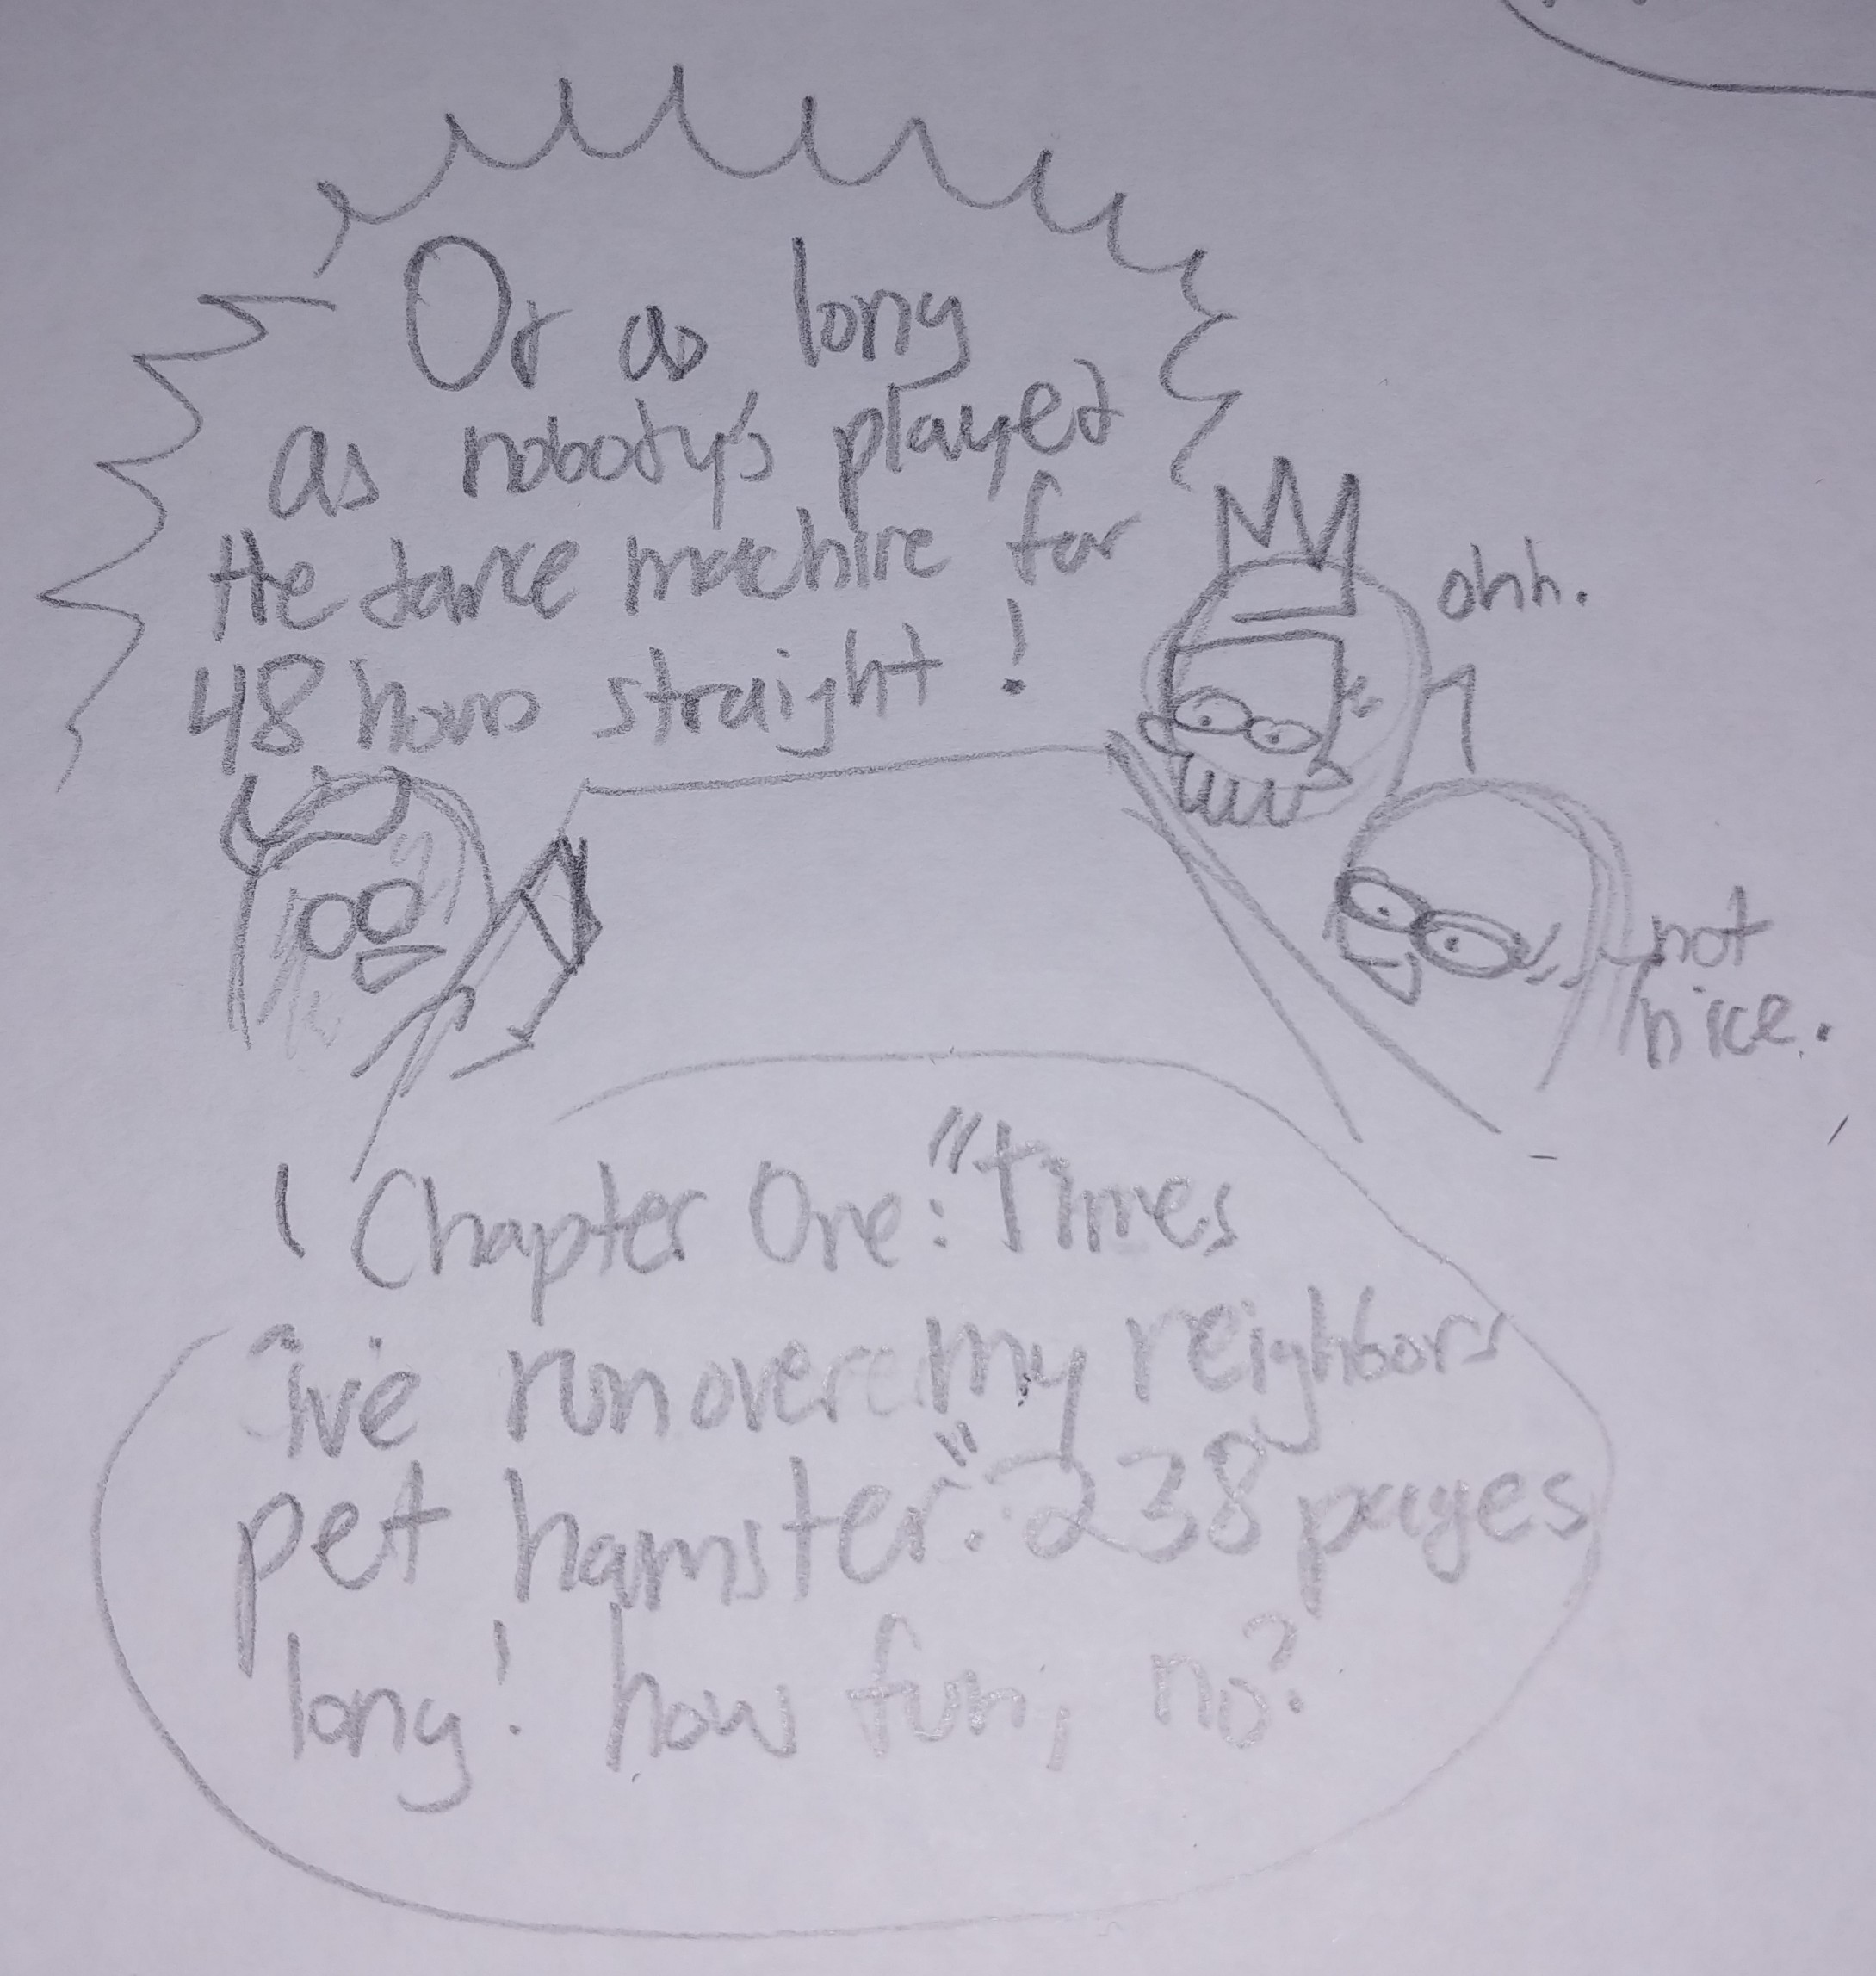 Or as long
as nobody's played
the dance machine for
48 hours straight!
ohh.
not
nice.
Chapter One: "Times
I've run over my neighbors
pet hamster." 238 pages
long! how fun, no?